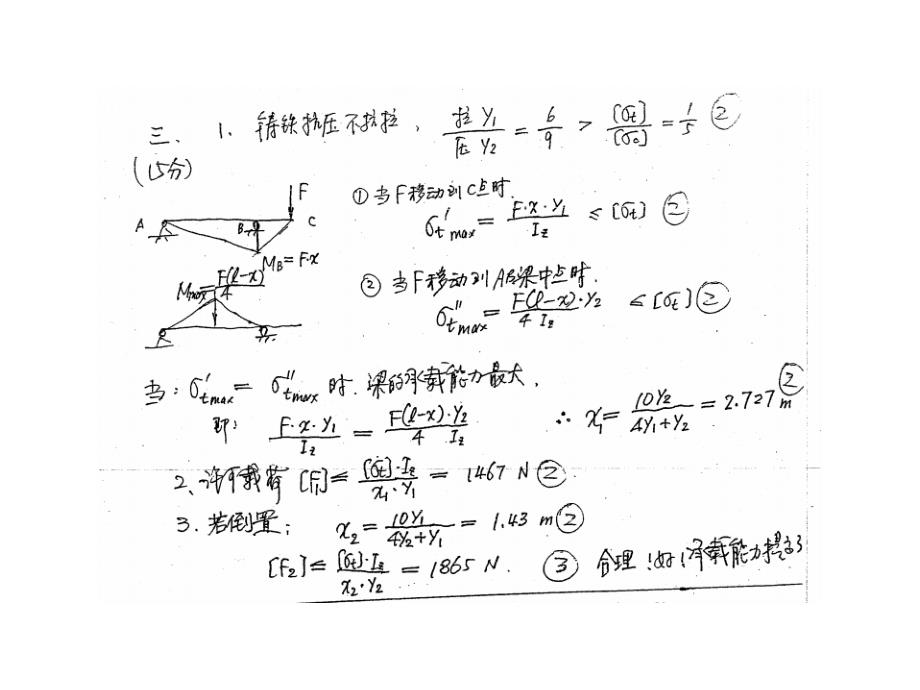 三、 1、铸铁抗压不抗拉， 拉 Y₁ / 压 Y₂ = 6/9 > [σt]/[σc] = 1/5 ②
(15分)
F
A B C
M_B = F·x
① 当F移动到C点时.
σ't max = F·x·Y₁ / I_z ≤ [σt] ②
M_max = F(l-x)/4
② 当F移动到AB梁中点时.
σ''t max = F(l-x)·Y₂ / 4 I_z ≤ [σt] ②
当: σ't max = σ''t max 时. 梁的承载能力最大,
即: F·x·Y₁ / I_z = F(l-x)·Y₂ / 4 I_z ∴ x₁ = 10Y₂ / 4Y₁+Y₂ = 2.727 m ②
2、许可载荷 [F₁] ≤ [σt]·I_z / x₁·Y₁ = 1467 N ②
3. 若倒置; x₂ = 10Y₁ / 4Y₂+Y₁ = 1.43 m ②
[F₂] ≤ [σt]·I_z / x₂·Y₂ = 1865 N. ③ 合理!好!承载能力提高了